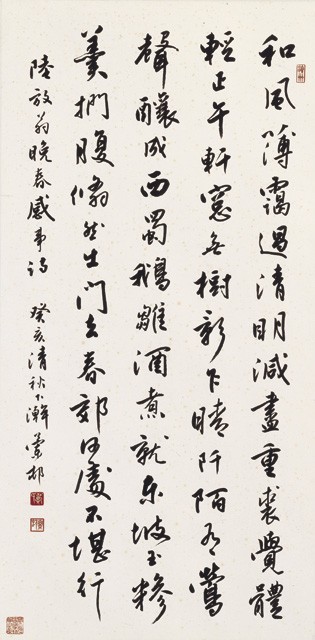 和風薄靄過清明減盡重裘覺體
輕正午軒窓無樹影乍晴阡陌有鶯
聲釀成西蜀鵝雛酒煮就東坡玉糝
羹捫腹翛然出門去春郊何處不堪行
陸放翁晚春感事詩 癸亥清秋下澣